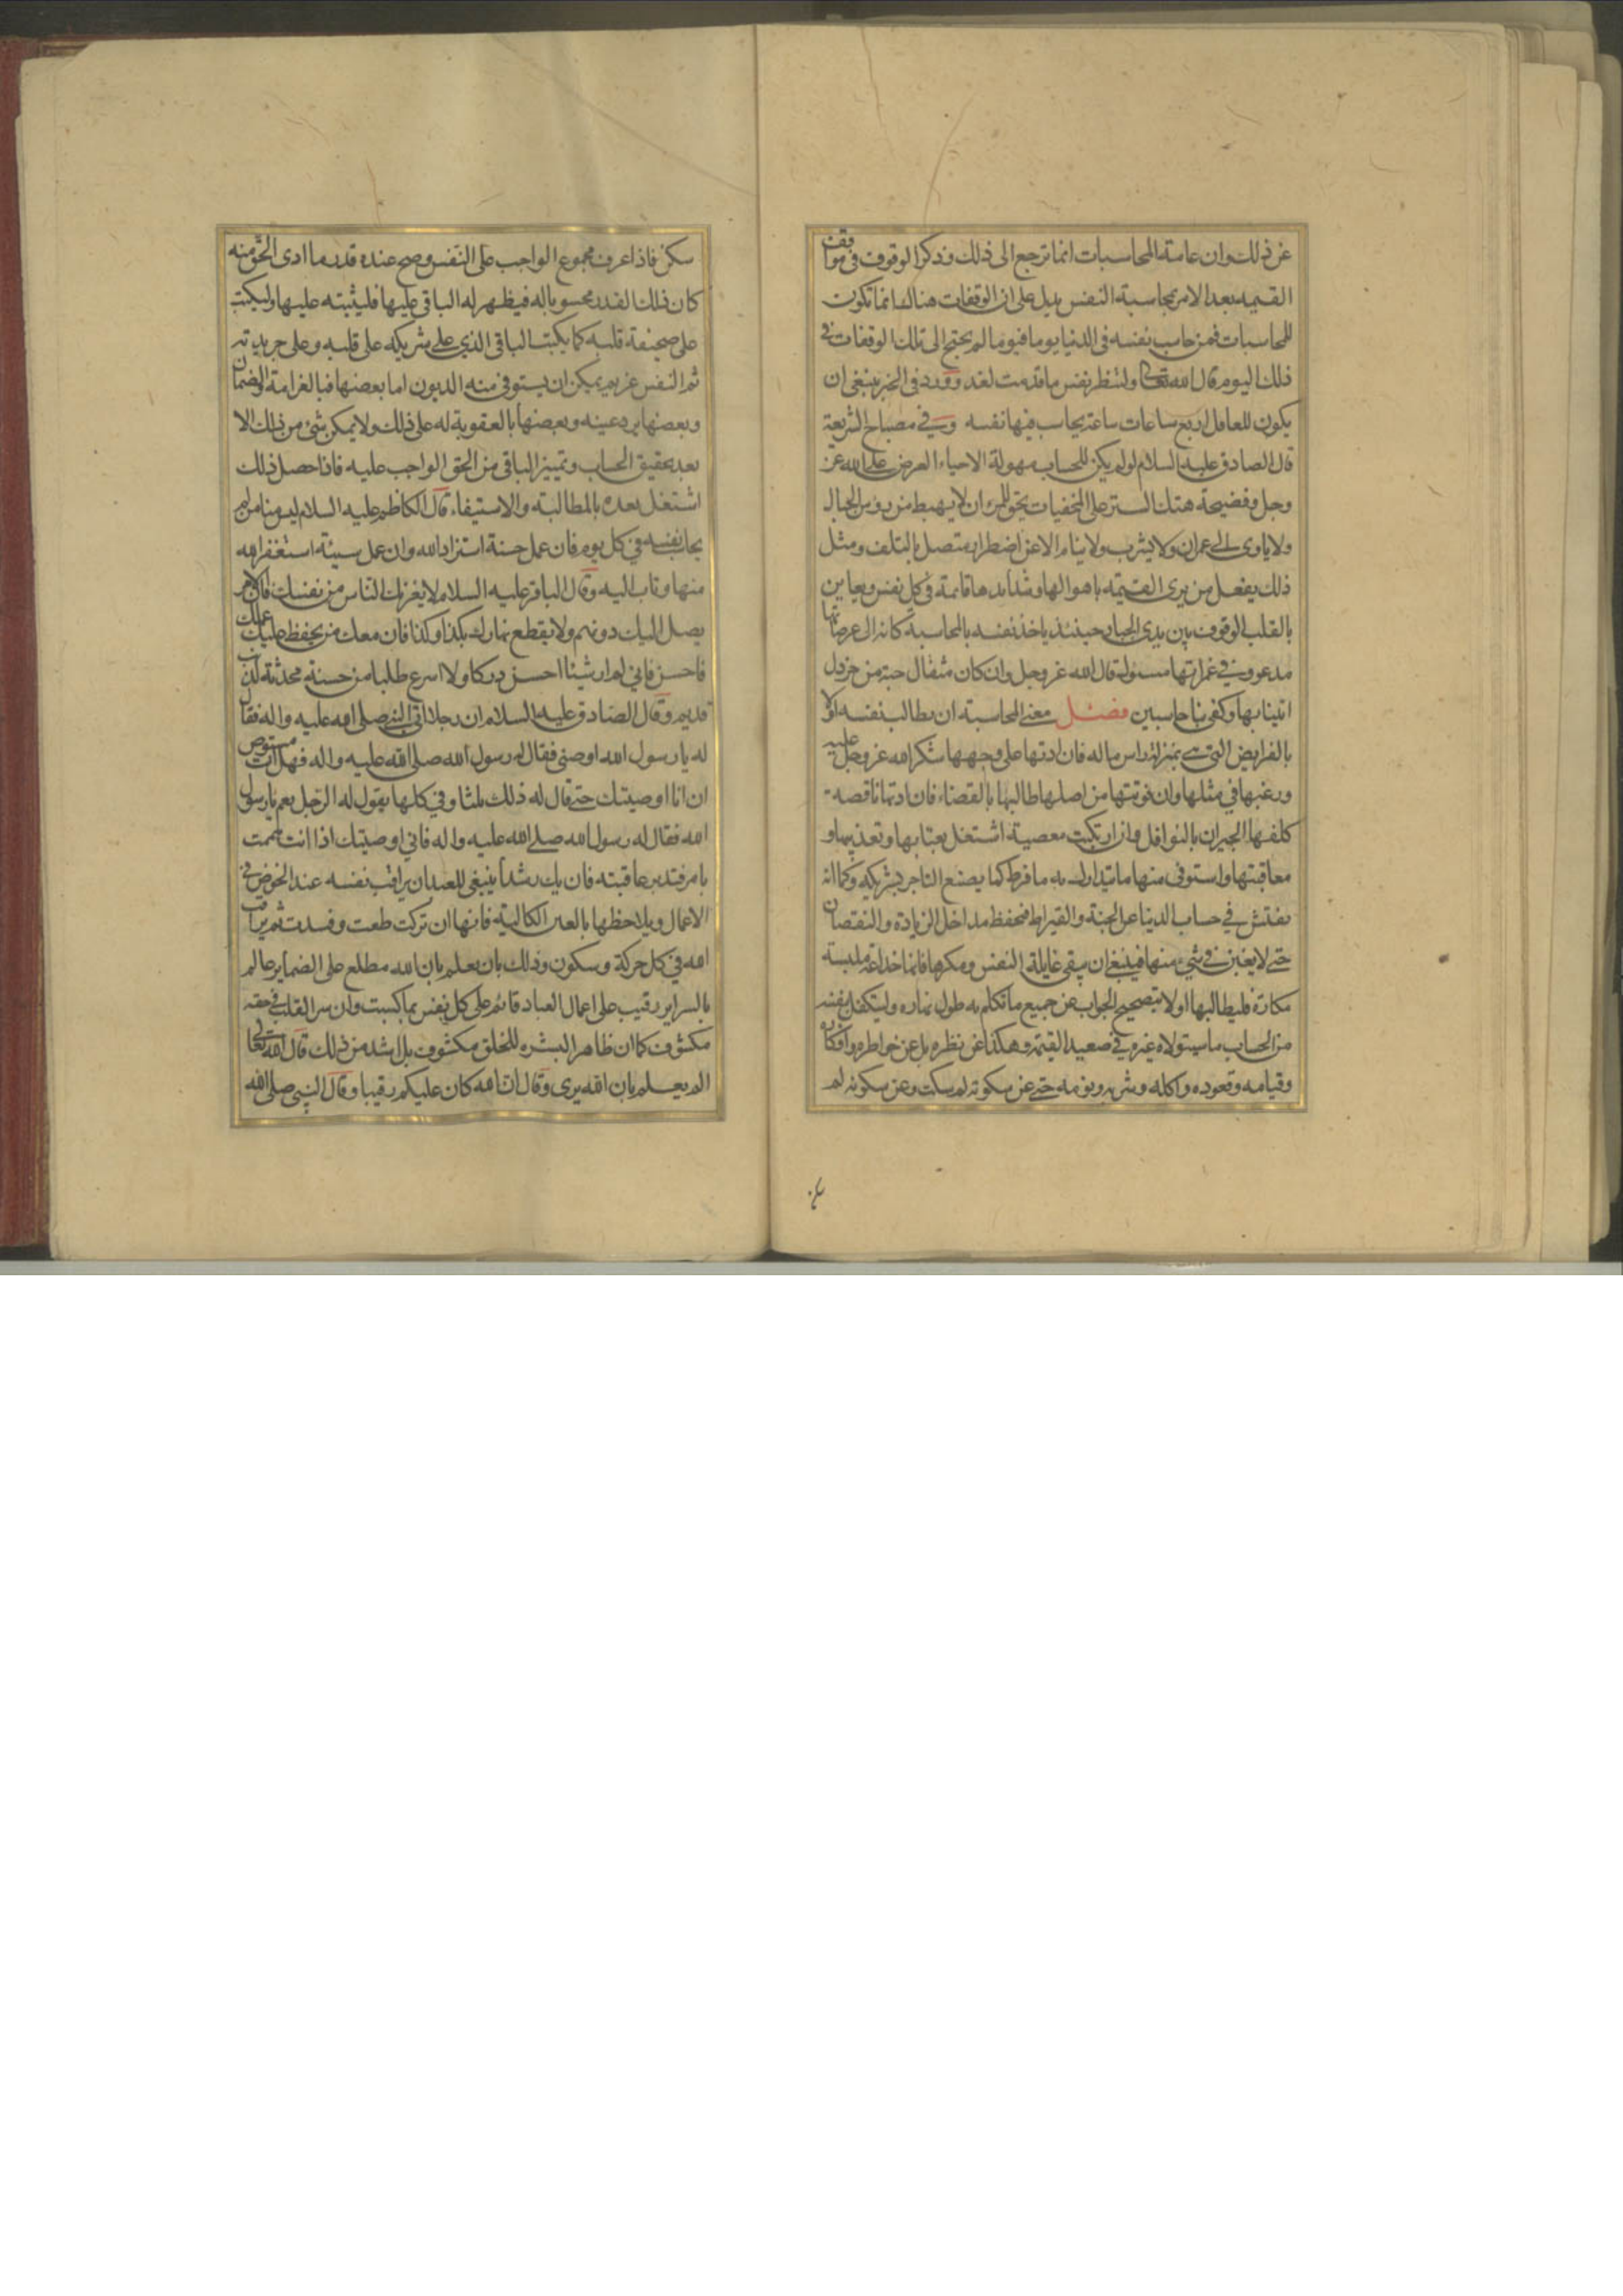 عن ذلك وان عامة المحاسبات انما ترجع الى ذلك وذكر الوقوف فى مواقف
القيمه بعد الامر بمحاسبة النفس يدل على ان الوقفات هناك انما تكون
للمحاسبات فمن حاسب نفسه فى الدنيا يوما فيوما لم يحتج الى تلك الوقفات فى
ذلك اليوم قال الله تعالى ولتنظر نفس ما قدمت لغد وورد فى الخبر ينبغى ان
يكون للعاقل اربع ساعات ساعة يحاسب فيها نفسه وفى مصباح الشريعة
قال الصادق عليه السلام لو لم يكن للحساب مهولة الاحياء العرض على الله عز
وجل وفضيحة هتك الستر على المخفيات يحق للمرء ان لا يهبط من رؤس الجبال
ولا ياوى الى عمران ولا يشرب ولا ينام الا عن اضطرار متصل بالتلف ومثل
ذلك يفعل من يرى القيمة باهوالها وشدايدها قائمة فى كل نفس ويعاين
بالقلب الوقوف بين يدى الجبار حينئذ ياخذ نفسه بالمحاسبة كانه الى عرصاتها
مدعو وفى غمراتها مسئول قال الله عز وجل وان كان مثقال حبة من خردل
اتينا بها وكفى بنا حاسبين فصل معنى المحاسبة ان يطالب نفسه اولا
بالفرايض التى هى بمنزلة راس ماله فان ادتها على وجهها شكر الله عز وجل عليه
ورغبها فى مثلها وان فوتتها من اصلها طالبها بالقضاء فان ادتها ناقصة
كلفها الجبران بالنوافل وان ارتكبت معصية اشتغل بعتابها وتعذيبها و
معاقبتها واستوفى منها ما يتدارك به ما فرط كما يصنع التاجر بشريكه وكما انه
يفتش فى حساب الدنيا عن الحبة والقيراط فيحفظ مداخل الزيادة والنقصان
حتى لا يغبن فى شىء منها فينبغى ان يتقى غايلة النفس ومكرها فانها خداعة ملبسة
مكارة فليطالبها اولا بتصحيح الجواب عن جميع ما تكلم به طول نهاره وليتكفل بنفسه
من الحساب ما سيتولاه غيره فى صعيد القيمة وهكذا عن نظره بل عن خواطره وافكاره
وقيامه وقعوده واكله وشربه ونومه حتى عن سكوته لم سكت وعن سكونه لم
سكن فاذا عرف مجموع الواجب على النفس وصح عنده قدر ما ادى الحق منه
كان ذلك القدر محسوبا له فيظهر له الباقى عليها فليثبته عليها وليكتب
على صحيفة قلبه كما يكتب الباقى الذى على شريكه على قلبه وعلى جريدته
ثم النفس غريم يمكن ان يستوفى منه الديون اما بعضها فبالغرامة والضمان
وبعضها برد عينه وبعضها بالعقوبة له على ذلك ولا يمكن شىء من ذلك الا
بعد تحقيق الحساب وتمييز الباقى من الحق الواجب عليه فاذا حصل ذلك
اشتغل بعده بالمطالبة والاستيفاء قال الكاظم عليه السلام ليس منا من لم
يحاسب نفسه فى كل يوم فان عمل حسنة استزاد الله وان عمل سيئة استغفر الله
منها وتاب اليه وقال الباقر عليه السلام لا يغرنك الناس من نفسك فان الامر
يصل اليك دونهم ولا يقطع نهارك بكذا وكذا فان معك من يحفظ عليك عملك
فاحسن فانى لم ار شيئا احسن دركا ولا اسرع طلبا من حسنة محدثة لذنب
قديم وقال الصادق عليه السلام ان رجلا اتى النبى صلى الله عليه واله فقال
له يا رسول الله اوصنى فقال له رسول الله صلى الله عليه واله فهل انت مستوص
ان انا اوصيتك حتى قال له ذلك ثلثا وفى كلها يقول له الرجل نعم يا رسول
الله فقال له رسول الله صلى الله عليه واله فانى اوصيتك اذا انت هممت
بامر فتدبر عاقبته فان يك رشدا ينبغى للعبد ان يراقب نفسه عند الخوض فى
الاعمال ويلاحظها بالعين الكالية فانها ان تركت طغت وفسدت ثم يراقب
الله فى كل حركة وسكون وذلك بان يعلم بان الله مطلع على الضماير عالم
بالسراير رقيب على اعمال العباد قائم على كل نفس بما كسبت وان سر القلب فى حقه
مكشوف كما ان ظاهر البشره للخلق مكشوف بل اشد من ذلك قال الله تعالى
الم يعلم بان الله يرى وقال ان الله كان عليكم رقيبا وقال النبى صلى الله